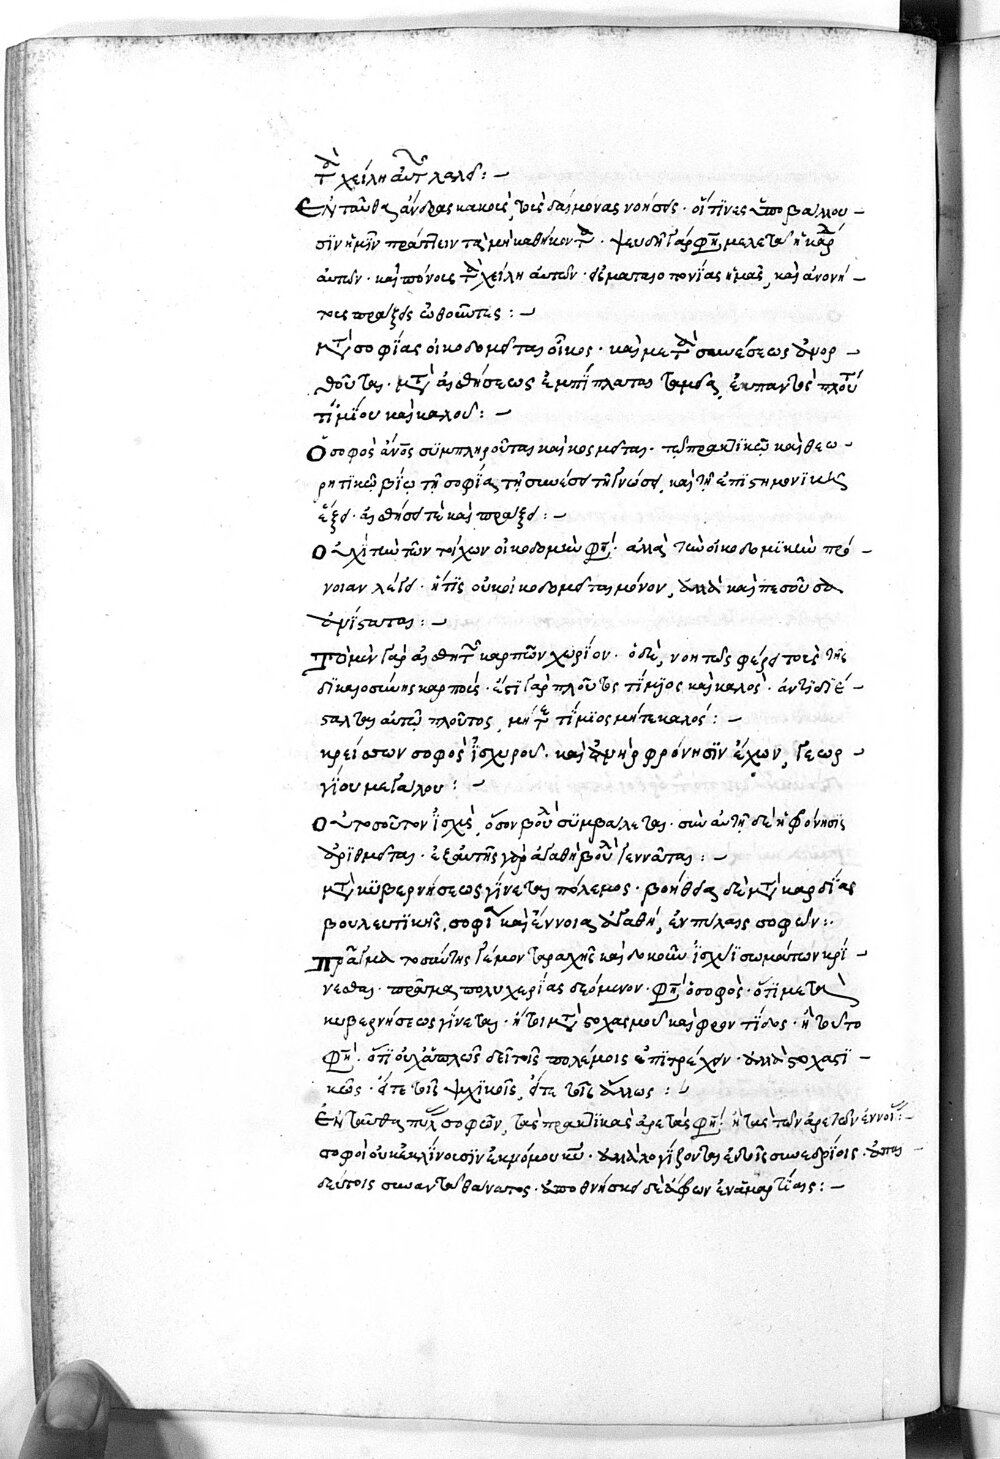 τὰ χείλη αὐτῶν λαλεῖ: —
Ἐνταῦθα ἄνδρας κακοὺς, τοὺς δαίμονας νοήσεις· οἵτινες ὑποβάλλου —
σιν ἡμῖν πράττειν τὰ μὴ καθήκοντα· ψευδῆ γάρ φησι, μελετᾷ ἡ καρδία
αὐτῶν· καὶ πόνους τὰ χείλη αὐτῶν· εἰς ματαιοπονίας ἡμᾶς, καὶ ἀνονή —
τους πράξεις ὠθοῦντες: —
μετὰ σοφίας οἰκοδομεῖται οἶκος· καὶ μετὰ συνέσεως ἀνορ —
θοῦται· μετὰ αἰσθήσεως ἐμπίπλαται ταμεῖα, ἐκ παντὸς πλούτου
τιμίου καὶ καλοῦ: —
Ὁ σοφὸς ἄνος συμπληροῦται καὶ κοσμεῖται· τῷ πρακτικῷ καὶ θεω —
ρητικῷ βίῳ τῇ σοφίᾳ, τῇ συνέσει τῇ γνώσει, καὶ τῇ ἐπιστημονικῇ
ἕξει· αἰσθήσει τὲ καὶ πράξει: —
Οὐχὶ τὴν τῶν τοίχων οἰκοδομὴν φησί· ἀλλὰ τὴν οἰκοδομικὴν πρό —
νοιαν λέγει· ἥτις οὐκ οἰκοδομεῖται μόνον, ἀλλὰ καὶ πεσοῦσα
ἀνίσταται: —
Τὸ μὲν γὰρ αἰσθητῶν καρπῶν χωρίον· ὁ δὲ, νοητῶς φέρει τοὺς τῆς
δικαιοσύνης καρποὺς· ἔστι γὰρ πλοῦτος τίμιος καὶ καλὸς· ἀντιδιέ —
σταλται αὐτῷ πλοῦτος, μήτε τίμιος μήτε καλός: —
κρείσσων σοφὸς ἰσχυροῦ· καὶ ἀνὴρ φρόνησιν ἔχων, γεωρ —
γίου μεγάλου: —
Οὐ τοσοῦτον ἰσχὺς, ὅσον βουλὴ συμβάλεται· σὺν αὐτῇ δὲ ἡ φρόνησις
ἀριθμεῖται· ἐξ αὐτῆς γὰρ ἀγαθὴ βουλὴ γεννᾶται: —
μετὰ κυβερνήσεως γίνεται πόλεμος· βοήθεια δὲ μετὰ καρδίας
βουλευτικῆς, σοφία καὶ ἔννοια ἀγαθὴ, ἐν πύλαις σοφῶν:·
Πρᾶγμα τοσαύτης γέμον ταραχῆς καὶ δοκοῦν ἰσχύι σωμάτων κρί —
νεσθαι· πρᾶγμα πολυχειρίας δεόμενον· φησὶ ὁ σοφὸς· ὅτι μετὰ
κυβερνήσεως γίνεται· ἤτοι μετὰ στοχασμοῦ καὶ φροντίδος· ἢ τοῦτο
φησὶ· ὅτι οὐχ ἁπλῶς δεῖ τοῖς πολέμοις ἐπιτρέχειν· ἀλλὰ στοχαστι —
κῶς· εἴτε τοῖς ψυχικοῖς, εἴτε τοῖς ἄλλως: —
Ἐνταῦθα πύλας σοφῶν, τὰς πρακτικὰς ἀρετὰς φησί· ἢ τὰς τῶν ἀρετῶν ἐννοίας: —
σοφοὶ οὐκ ἐκκλίνουσιν ἐκ νόμου κυ· ἀλλὰ λογίζονται ἐν τοῖς συνεδρίοις· ἀπαι —
δεύτοις συναντᾷ θάνατος· ἀποθνήσκει δὲ ἄφρων ἐν ἁμαρτίαις: —